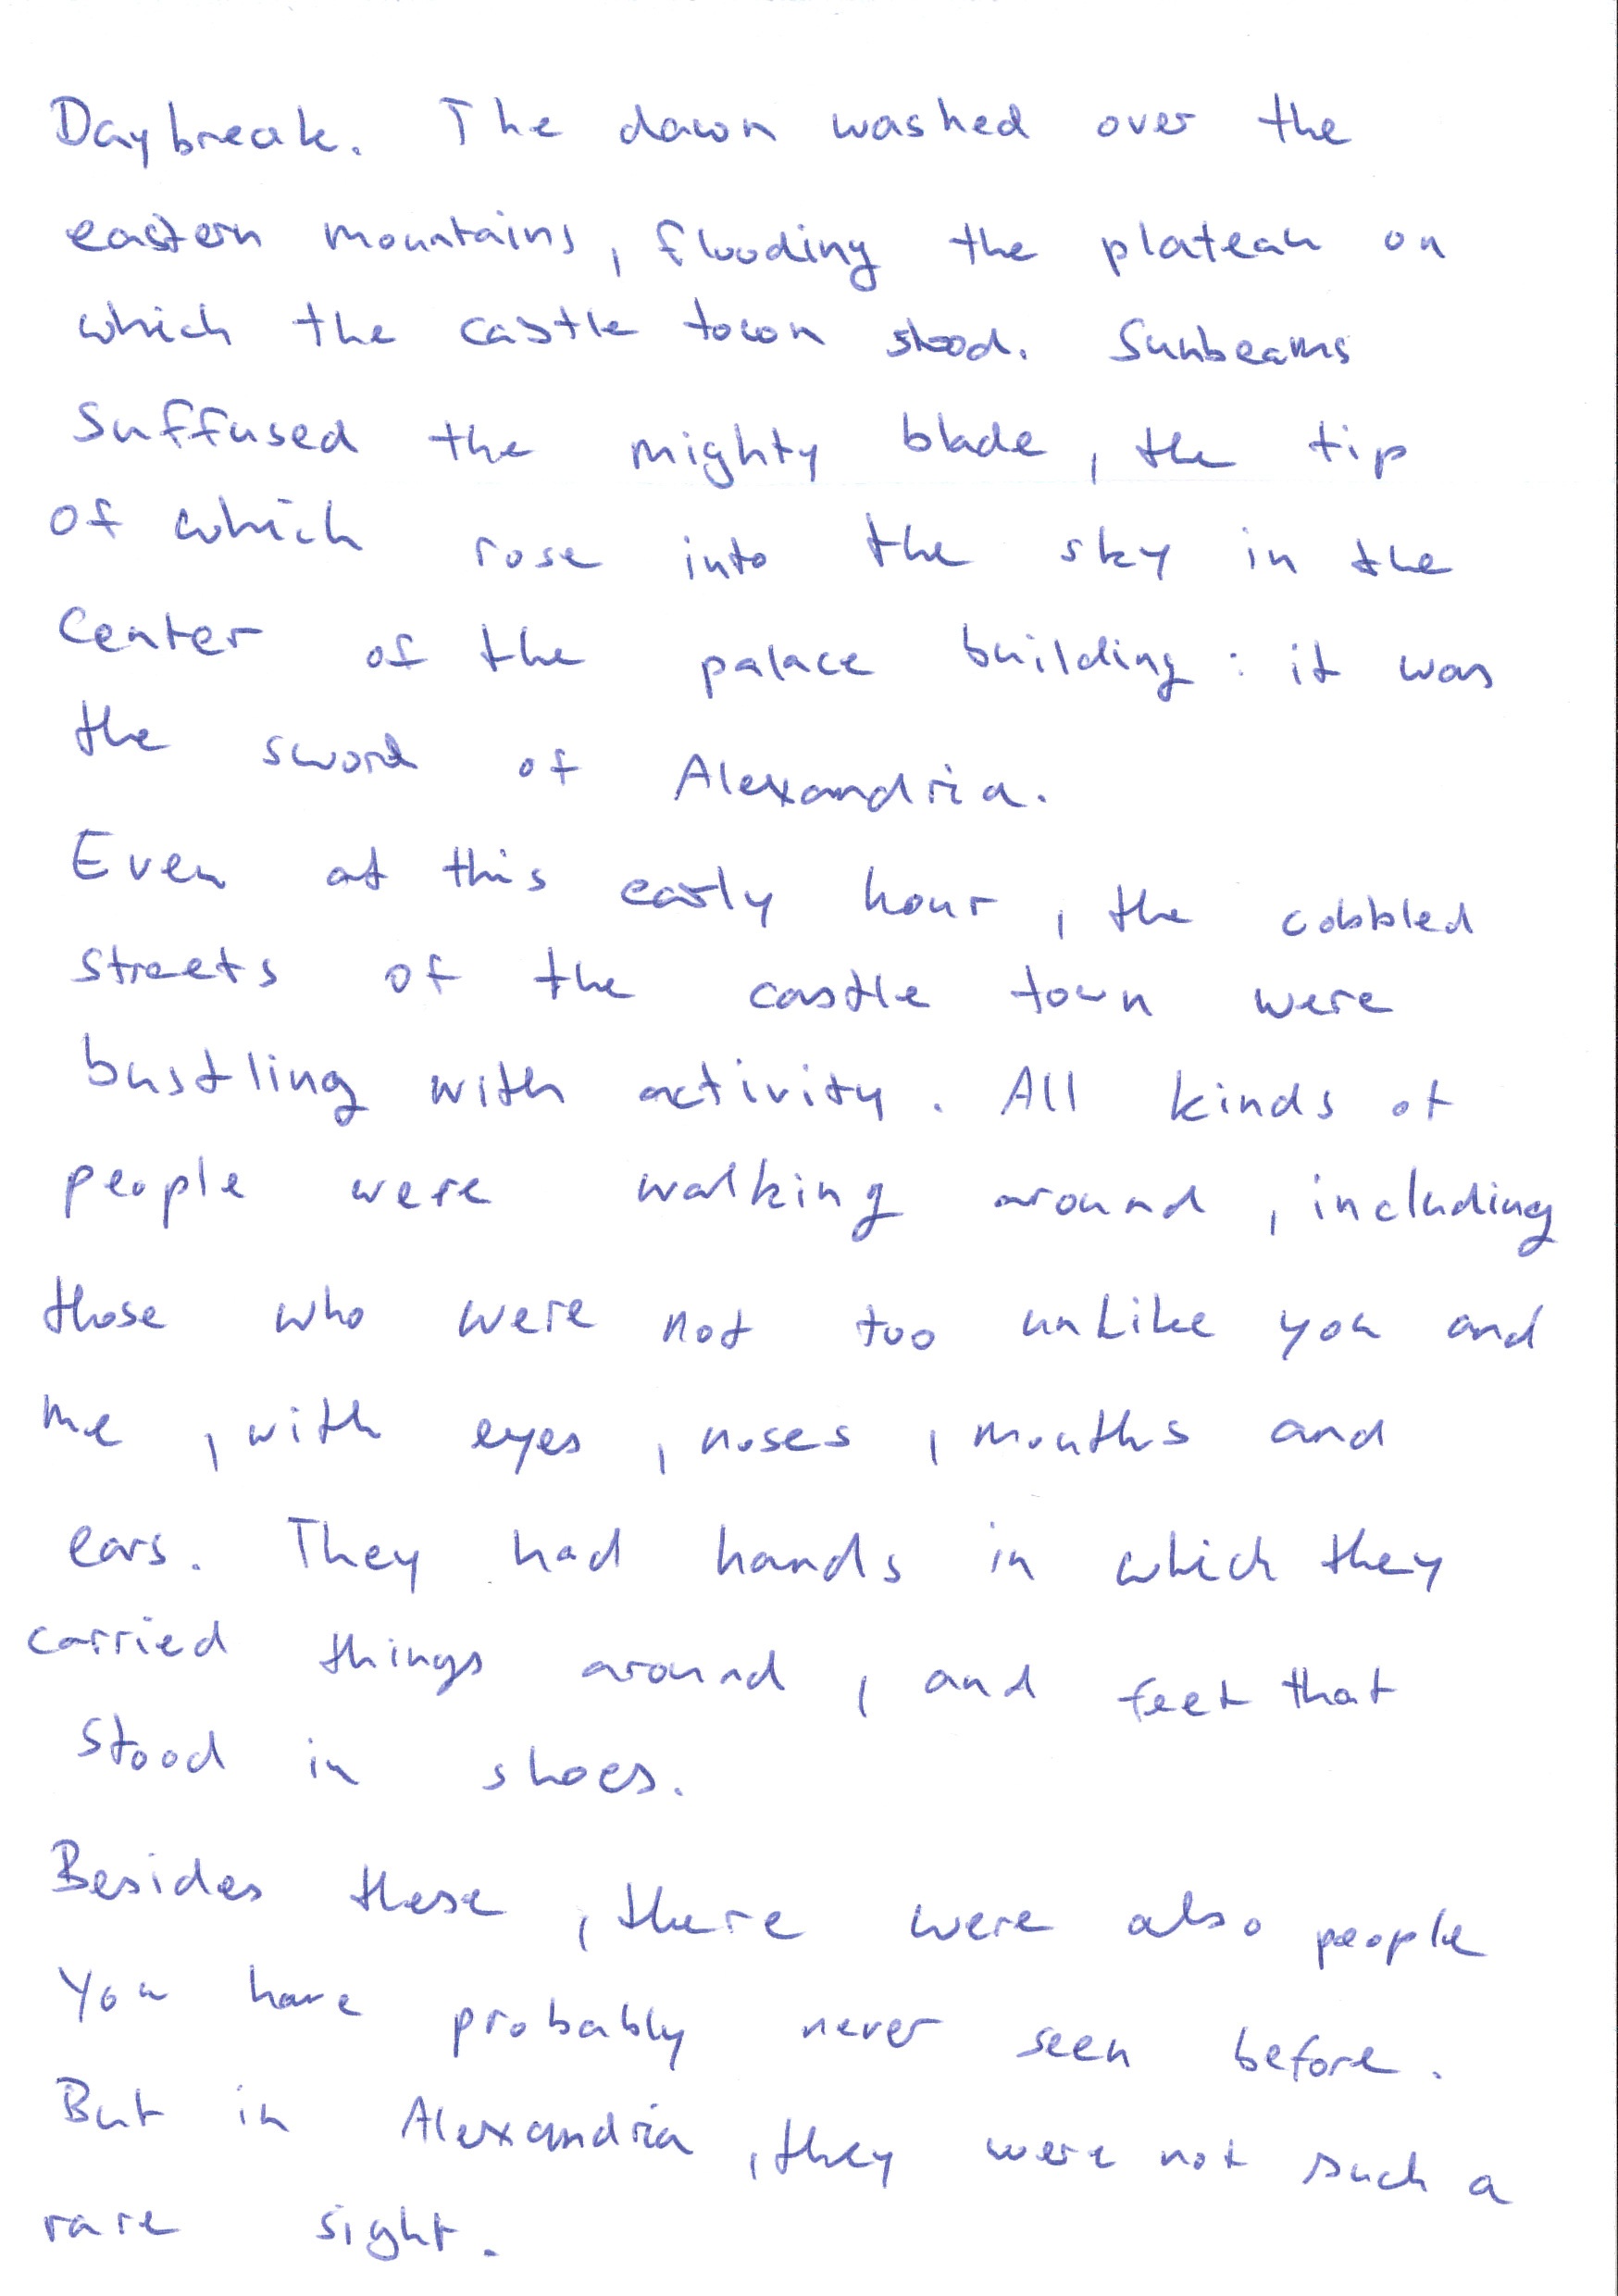 Daybreak. The dawn washed over the
eastern mountains, flooding the plateau on
which the castle town stood. Sunbeams
suffused the mighty blade, the tip
of which rose into the sky in the
center of the palace building: it was
the sword of Alexandria.
Even at this early hour, the cobbled
streets of the castle town were
bustling with activity. All kinds of
people were walking around, including
those who were not too unlike you and
me, with eyes, noses, mouths and
ears. They had hands in which they
carried things around, and feet that
stood in shoes.
Besides these, there were also people
you have probably never seen before.
But in Alexandria, they were not such a
rare sight.